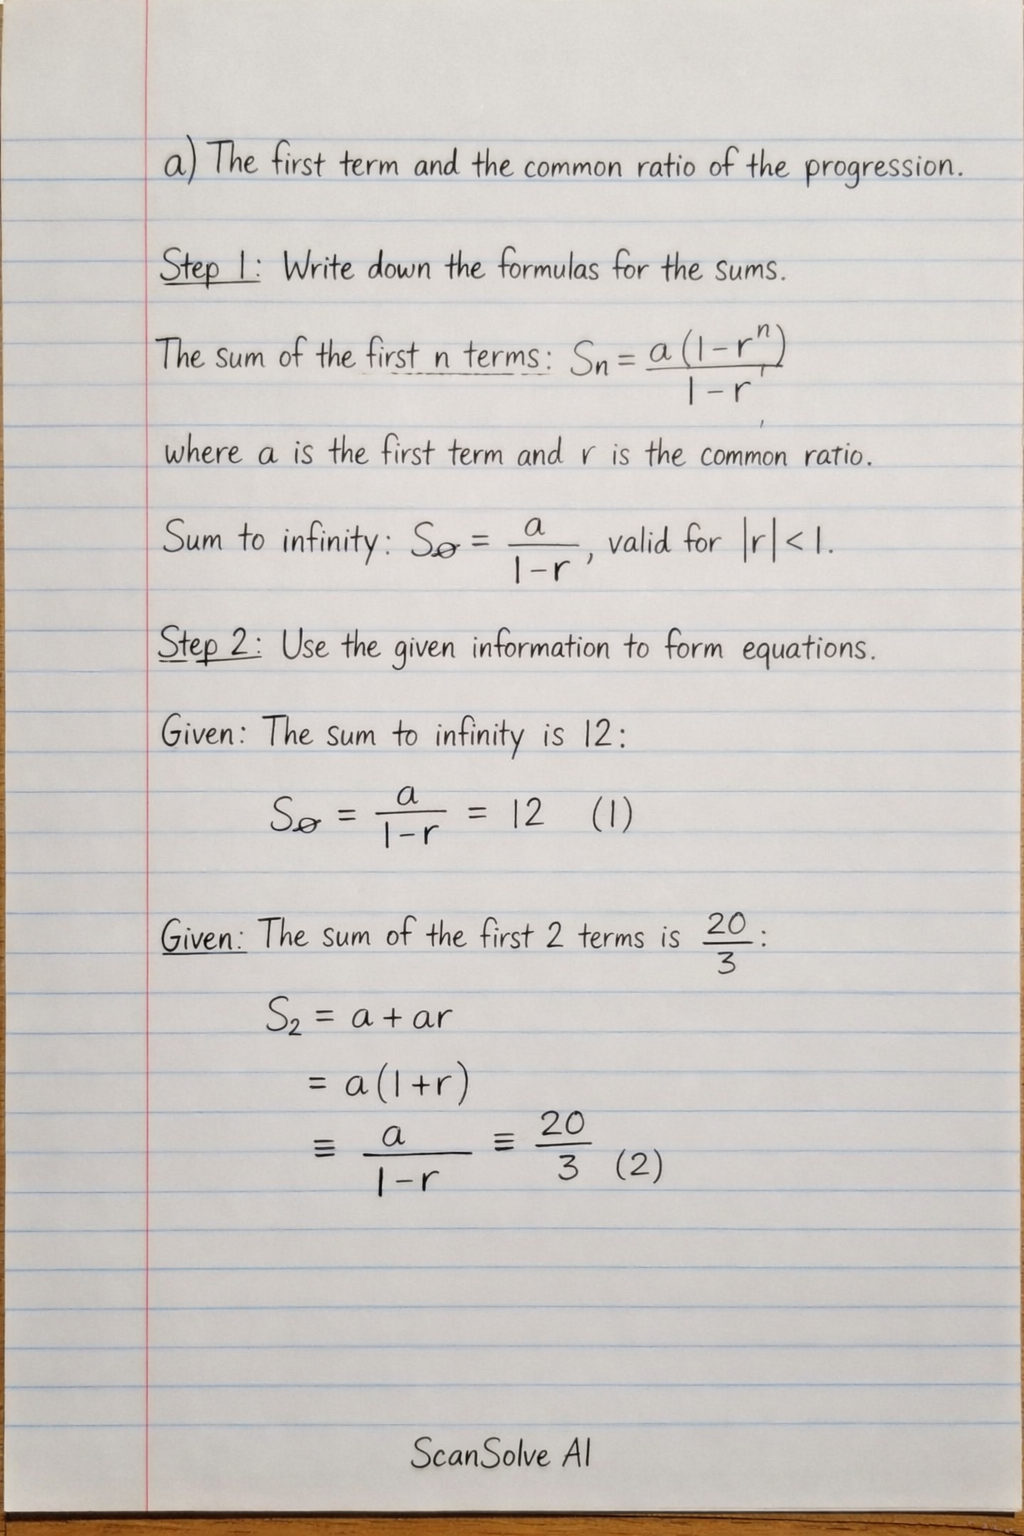 a) The first term and the common ratio of the progression.
Step 1: Write down the formulas for the sums.
The sum of the first n terms: Sn = a(1-rⁿ) / 1-r ,
where a is the first term and r is the common ratio.
Sum to infinity: S∞ = a / 1-r , valid for |r| < 1.
Step 2: Use the given information to form equations.
Given: The sum to infinity is 12:
S∞ = a / 1-r = 12 (1)
Given: The sum of the first 2 terms is 20/3 :
S₂ = a + ar
= a(1+r)
≡ a / 1-r ≡ 20/3 (2)
ScanSolve AI